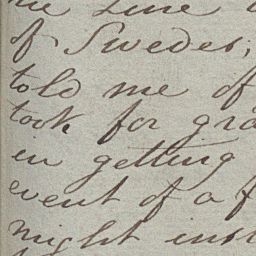 of Swedes;
told me of
took for gra
in getting
event of a f
might ins